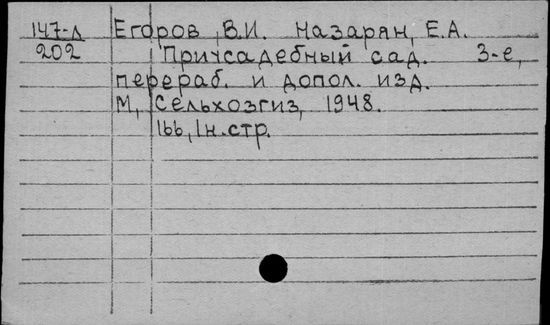 147-д Егоров, В.И. Назарян, Е.А.
202 Приусадебный сад. 3-е,
перераб. и допол. изд.
М, Сельхозгиз, 1948.
166, 1н.стр.